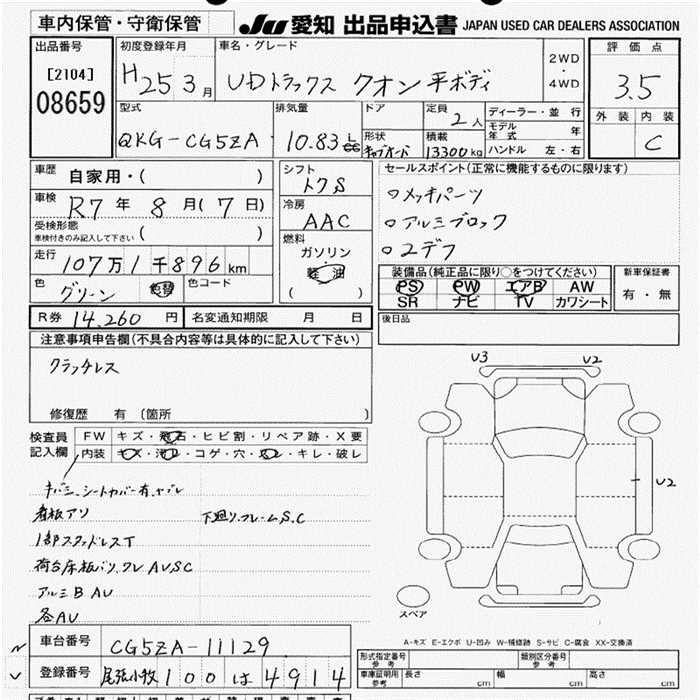 車内保管・守衛保管 JU 愛知 出品申込書 JAPAN USED CAR DEALERS ASSOCIATION
出品番号 [2104] 08659
初度登録年月 H25 3月
車名・グレード UDトラックス クオン 平ボディ
2WD・4WD
評価点 3.5
外装 内装 C
型式 QKG-CG5ZA
排気量 10.83 L cc
ドア
形状 キャブオーバ
定員 2人
積載 13300kg
ディーラー・並行
モデル年式 年
ハンドル 左・右
車歴 自家用・( )
車検 R7年8月(7日)
受検形態 車検付きのみ記入して下さい ( )
走行 107万1千896km
色 グリーン 色替 色コード
シフト トクS
冷房 AAC
燃料 ガソリン・軽油 ( )
セールスポイント(正常に機能するものに限ります)
○メッキパーツ
○アルミブロック
○ユデフ
装備品(純正品に限り○をつけてください)
PS PW エアB AW
SR ナビ TV カワシート
新車保証書 有・無
R券 14,260円 名変通知期限 月 日
後日品
注意事項申告欄(不具合内容等は具体的に記入して下さい)
クラッチレス
修復歴 有 [箇所 ]
検査員記入欄
FW キズ・飛石・ヒビ割・リペア跡・X要
内装 キズ・汚レ・コゲ・穴・スレ・キレ・破レ
キバミ、シートカバー有、ヤブレ
看板アリ 下廻り、フレームS.C
1部スタッドレスT
荷台床板バリ、ワレ AVSC
アルミB AU
各AU
U3 U2
U2
スペア
A-キズ E-エクボ U-凹み W-補修跡 S-サビ C-腐食 XX-交換済
車台番号 CG5ZA-11129
登録番号 尾張小牧 100は4914
形式指定番号 参考 類別区分番号 参考
車庫証明用 参考 長さ cm 幅 cm 高さ cm